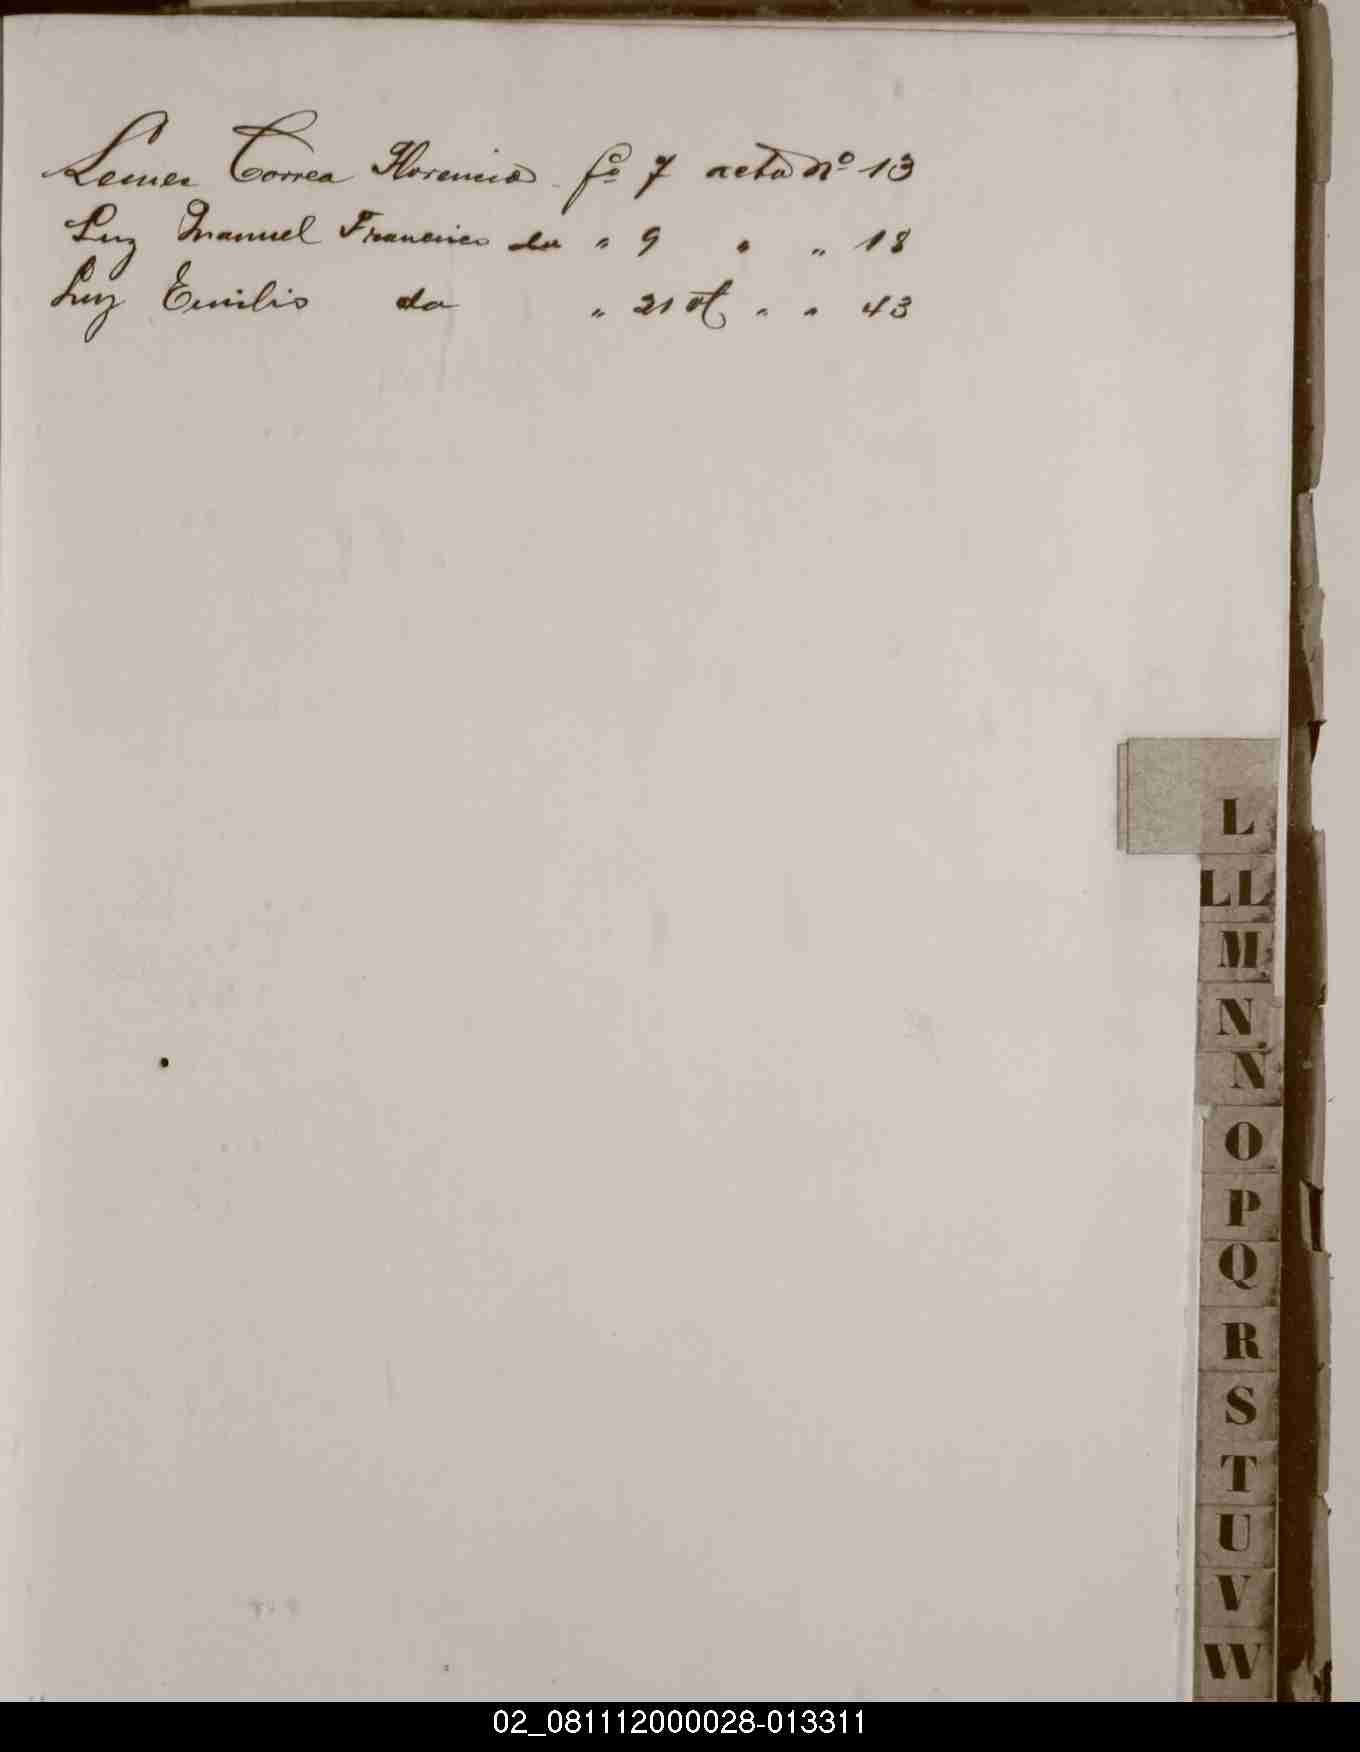 Lemes Correa Florencio fº 7 acta nº 13
Luz Manuel Francisco da " 9 " " 18
Luz Emilio da " 21 vt " " 43
L
LL
M
N
N
O
P
Q
R
S
T
U
V
W
02_081112000028-013311